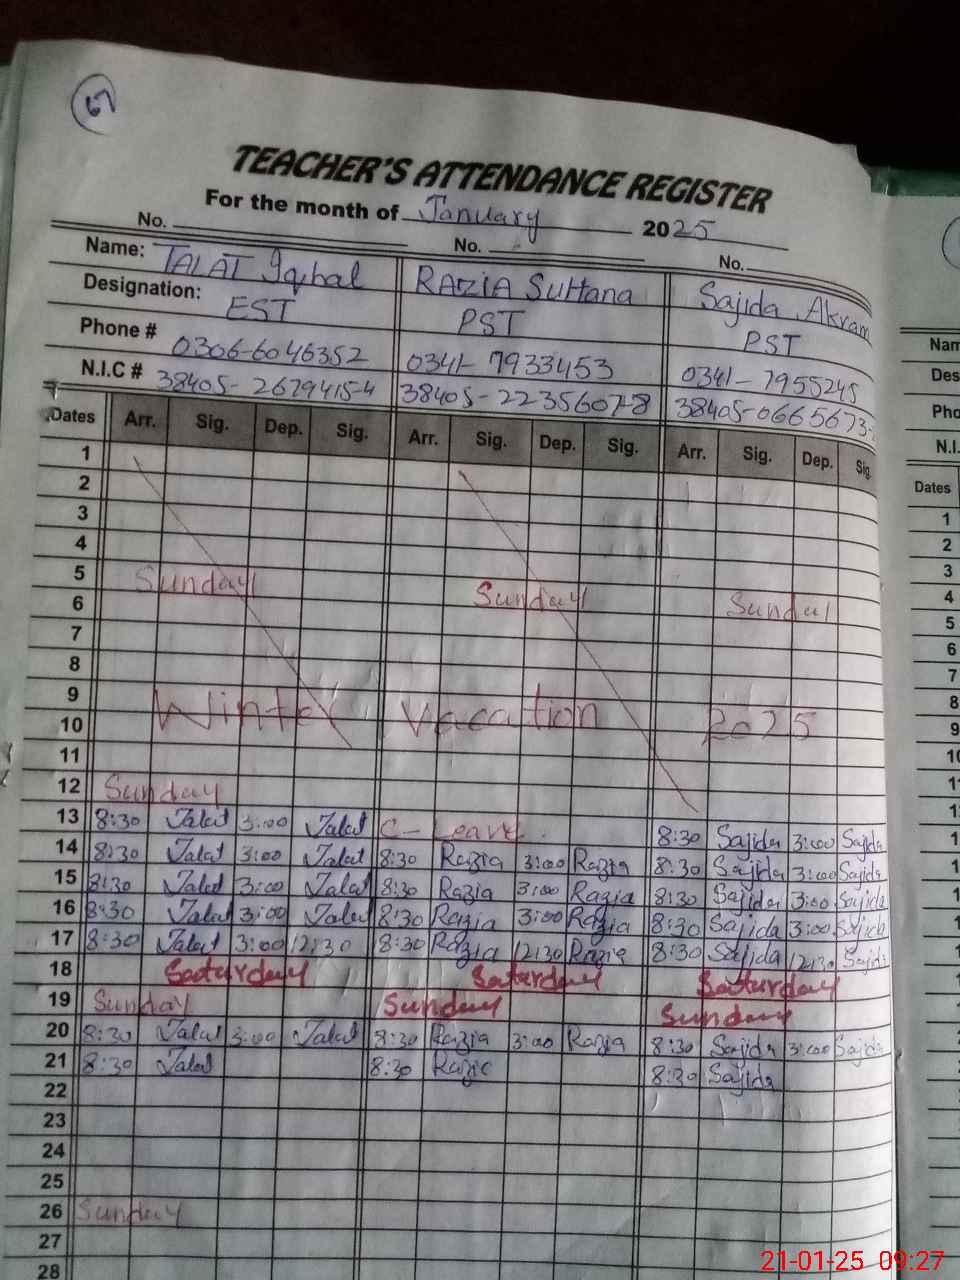 67
TEACHER'S ATTENDANCE REGISTER
For the month of January 2025
No. No. No.
Name: TALAT Iqbal RAZIA Sultana Sajida Akram
Designation: EST PST PST
Phone # 0306-6046352 0341-7933453 0341-7955245
N.I.C # 38405-2679415-4 38405-2235607-8 38405-0665673-
Dates Arr. Sig. Dep. Sig. Arr. Sig. Dep. Sig. Arr. Sig. Dep. Sig.
1
2
3
4
5 Sunday Sunday Sunday
6
7
8
9
10 Winter Vacation 2025
11
12 Sunday
13 8:30 Talat 3:00 Talat C-Leave 8:30 Sajida 3:00 Sajida
14 8:30 Talat 3:00 Talat 8:30 Razia 3:00 Razia 8:30 Sajida 3:00 Sajida
15 8:30 Talat 3:00 Talat 8:30 Razia 3:00 Razia 8:30 Sajida 3:00 Sajida
16 8:30 Talat 3:00 Talat 8:30 Razia 3:00 Razia 8:30 Sajida 3:00 Sajida
17 8:30 Talat 3:00 12:30 8:30 Razia 12:30 Razia 8:30 Sajida 12:30 Sajida
18 Saturday Saturday Saturday
19 Sunday Sunday Sunday
20 8:30 Talat 3:00 Talat 8:30 Razia 3:00 Razia 8:30 Sajida 3:00 Sajida
21 8:30 Talat 8:30 Razia 8:30 Sajida
22
23
24
25
26 Sunday
27
28
Nam
Des
Pho
N.I.
Dates
1
2
3
4
5
6
7
8
9
10
11
21-01-25 09:27